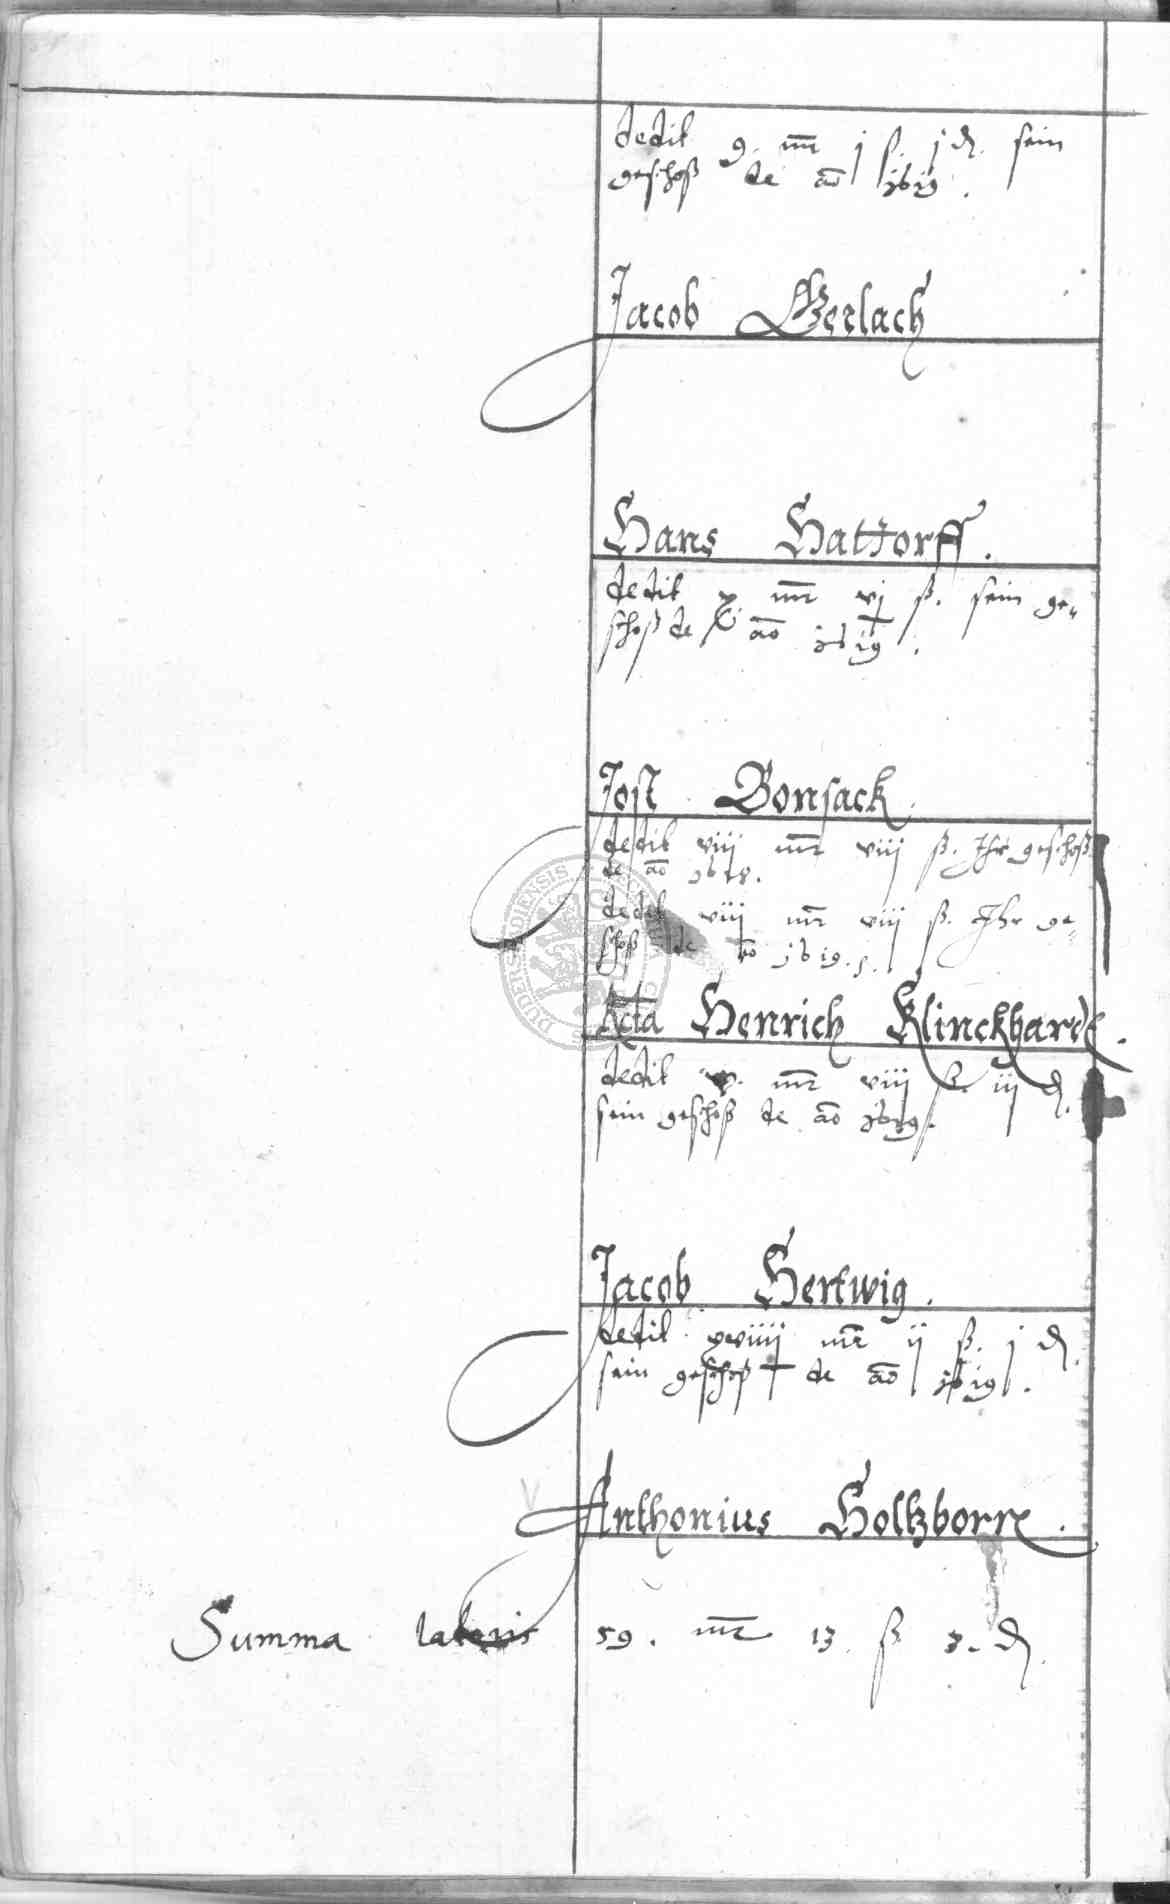 dedit 9. mr j ß. j d. sein
geschoß de ao 1619.
Jacob Gerlach
Hans Hattorff.
dedit x mr vj ß. sein ge-
schoß de ao 1619.
Jost Bonsack
dedit viiij mr viij ß. Ihr geschoß
de ao 1618.
dedit viij mr viij ß. Ihr ge-
schoß de ao 1619.
Acta Henrich Klinckhardt.
dedit mr viij ß. iij d.
sein geschoß de ao 1619.
Jacob Hertwig.
dedit xviiij mr ij ß. j d.
sein geschoß de ao 1619.
Anthonius Holtzborn.
Summa lateris 59. mr 13. ß 3. d.